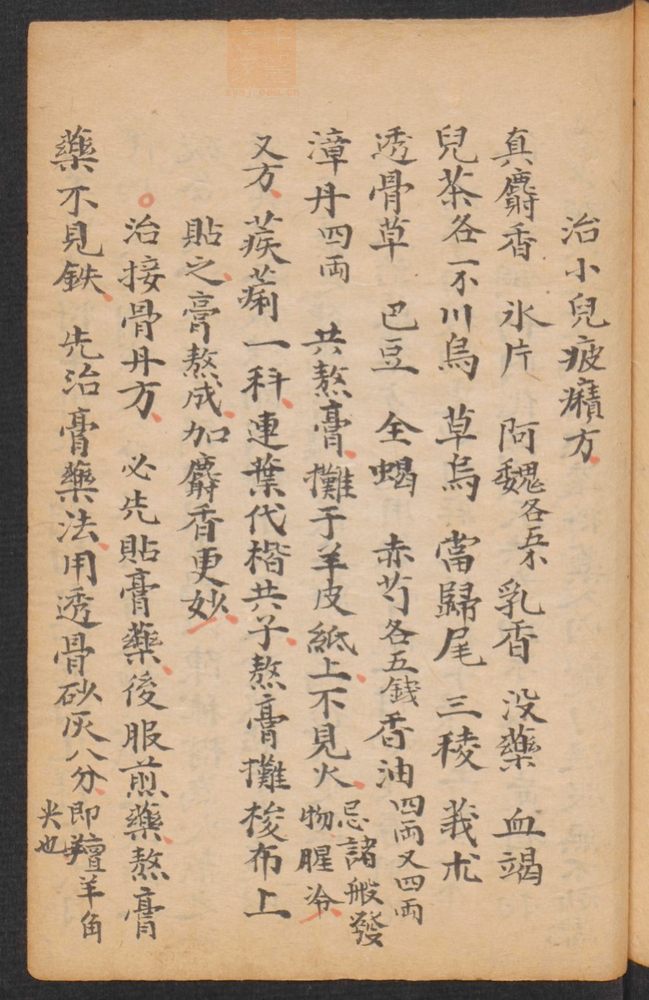 治小兒疲癪方
真麝香 氷片 阿魏各五不 乳香 没藥 血竭
兒茶各一不 川烏 草烏 當歸尾 三稜 莪朮
透骨草 巴豆 全蝎 赤芍各五錢 香油四両又四両
漳丹四両 共熬膏攤于羊皮紙上不見火忌諸般發物腥冷
又方 蒺藜一科連葉代楷共子熬膏攤梭布上
貼之膏熬成加麝香更妙
治接骨丹方 必先貼膏藥後服煎藥熬膏
藥不見鉄 先治膏藥法用透骨砂灰八分即羶羊角尖也